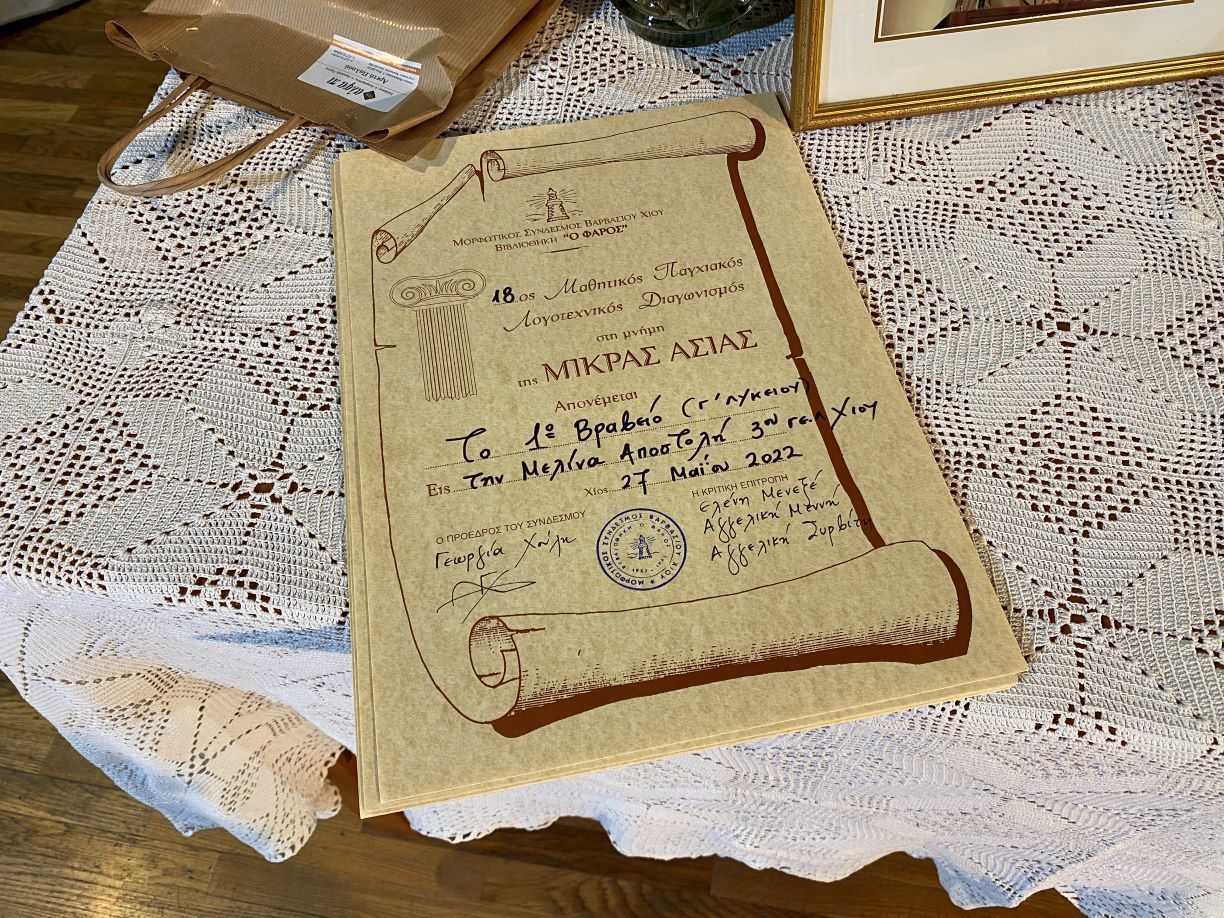 ΜΟΡΦΩΤΙΚΟΣ ΣΥΝΔΕΣΜΟΣ ΒΑΡΒΑΣΙΟΥ ΧΙΟΥ
ΒΙΒΛΙΟΘΗΚΗ "Ο ΦΑΡΟΣ"
18.ος Μαθητικός Παγχιακός
Λογοτεχνικός Διαγωνισμός
στη μνήμη
της ΜΙΚΡΑΣ ΑΣΙΑΣ
Απονέμεται
Το 1ο Βραβείο (Γ' Λυκείου)
Εις την Μελίνα Αποστολή 3ου ΓΕ.Λ Χίου
Χίος 27 Μαΐου 2022
Ο ΠΡΟΕΔΡΟΣ ΤΟΥ ΣΥΝΔΕΣΜΟΥ
Γεωργία
Η ΚΡΙΤΙΚΗ ΕΠΙΤΡΟΠΗ
Ελένη Μενεζέ
Αγγελική Μεννή
Αγγελική
ΜΟΡΦΩΤΙΚΟΣ ΣΥΝΔΕΣΜΟΣ ΒΑΡΒΑΣΙΟΥ ΧΙΟΥ
ΒΙΒΛΙΟΘΗΚΗ Ο ΦΑΡΟΣ